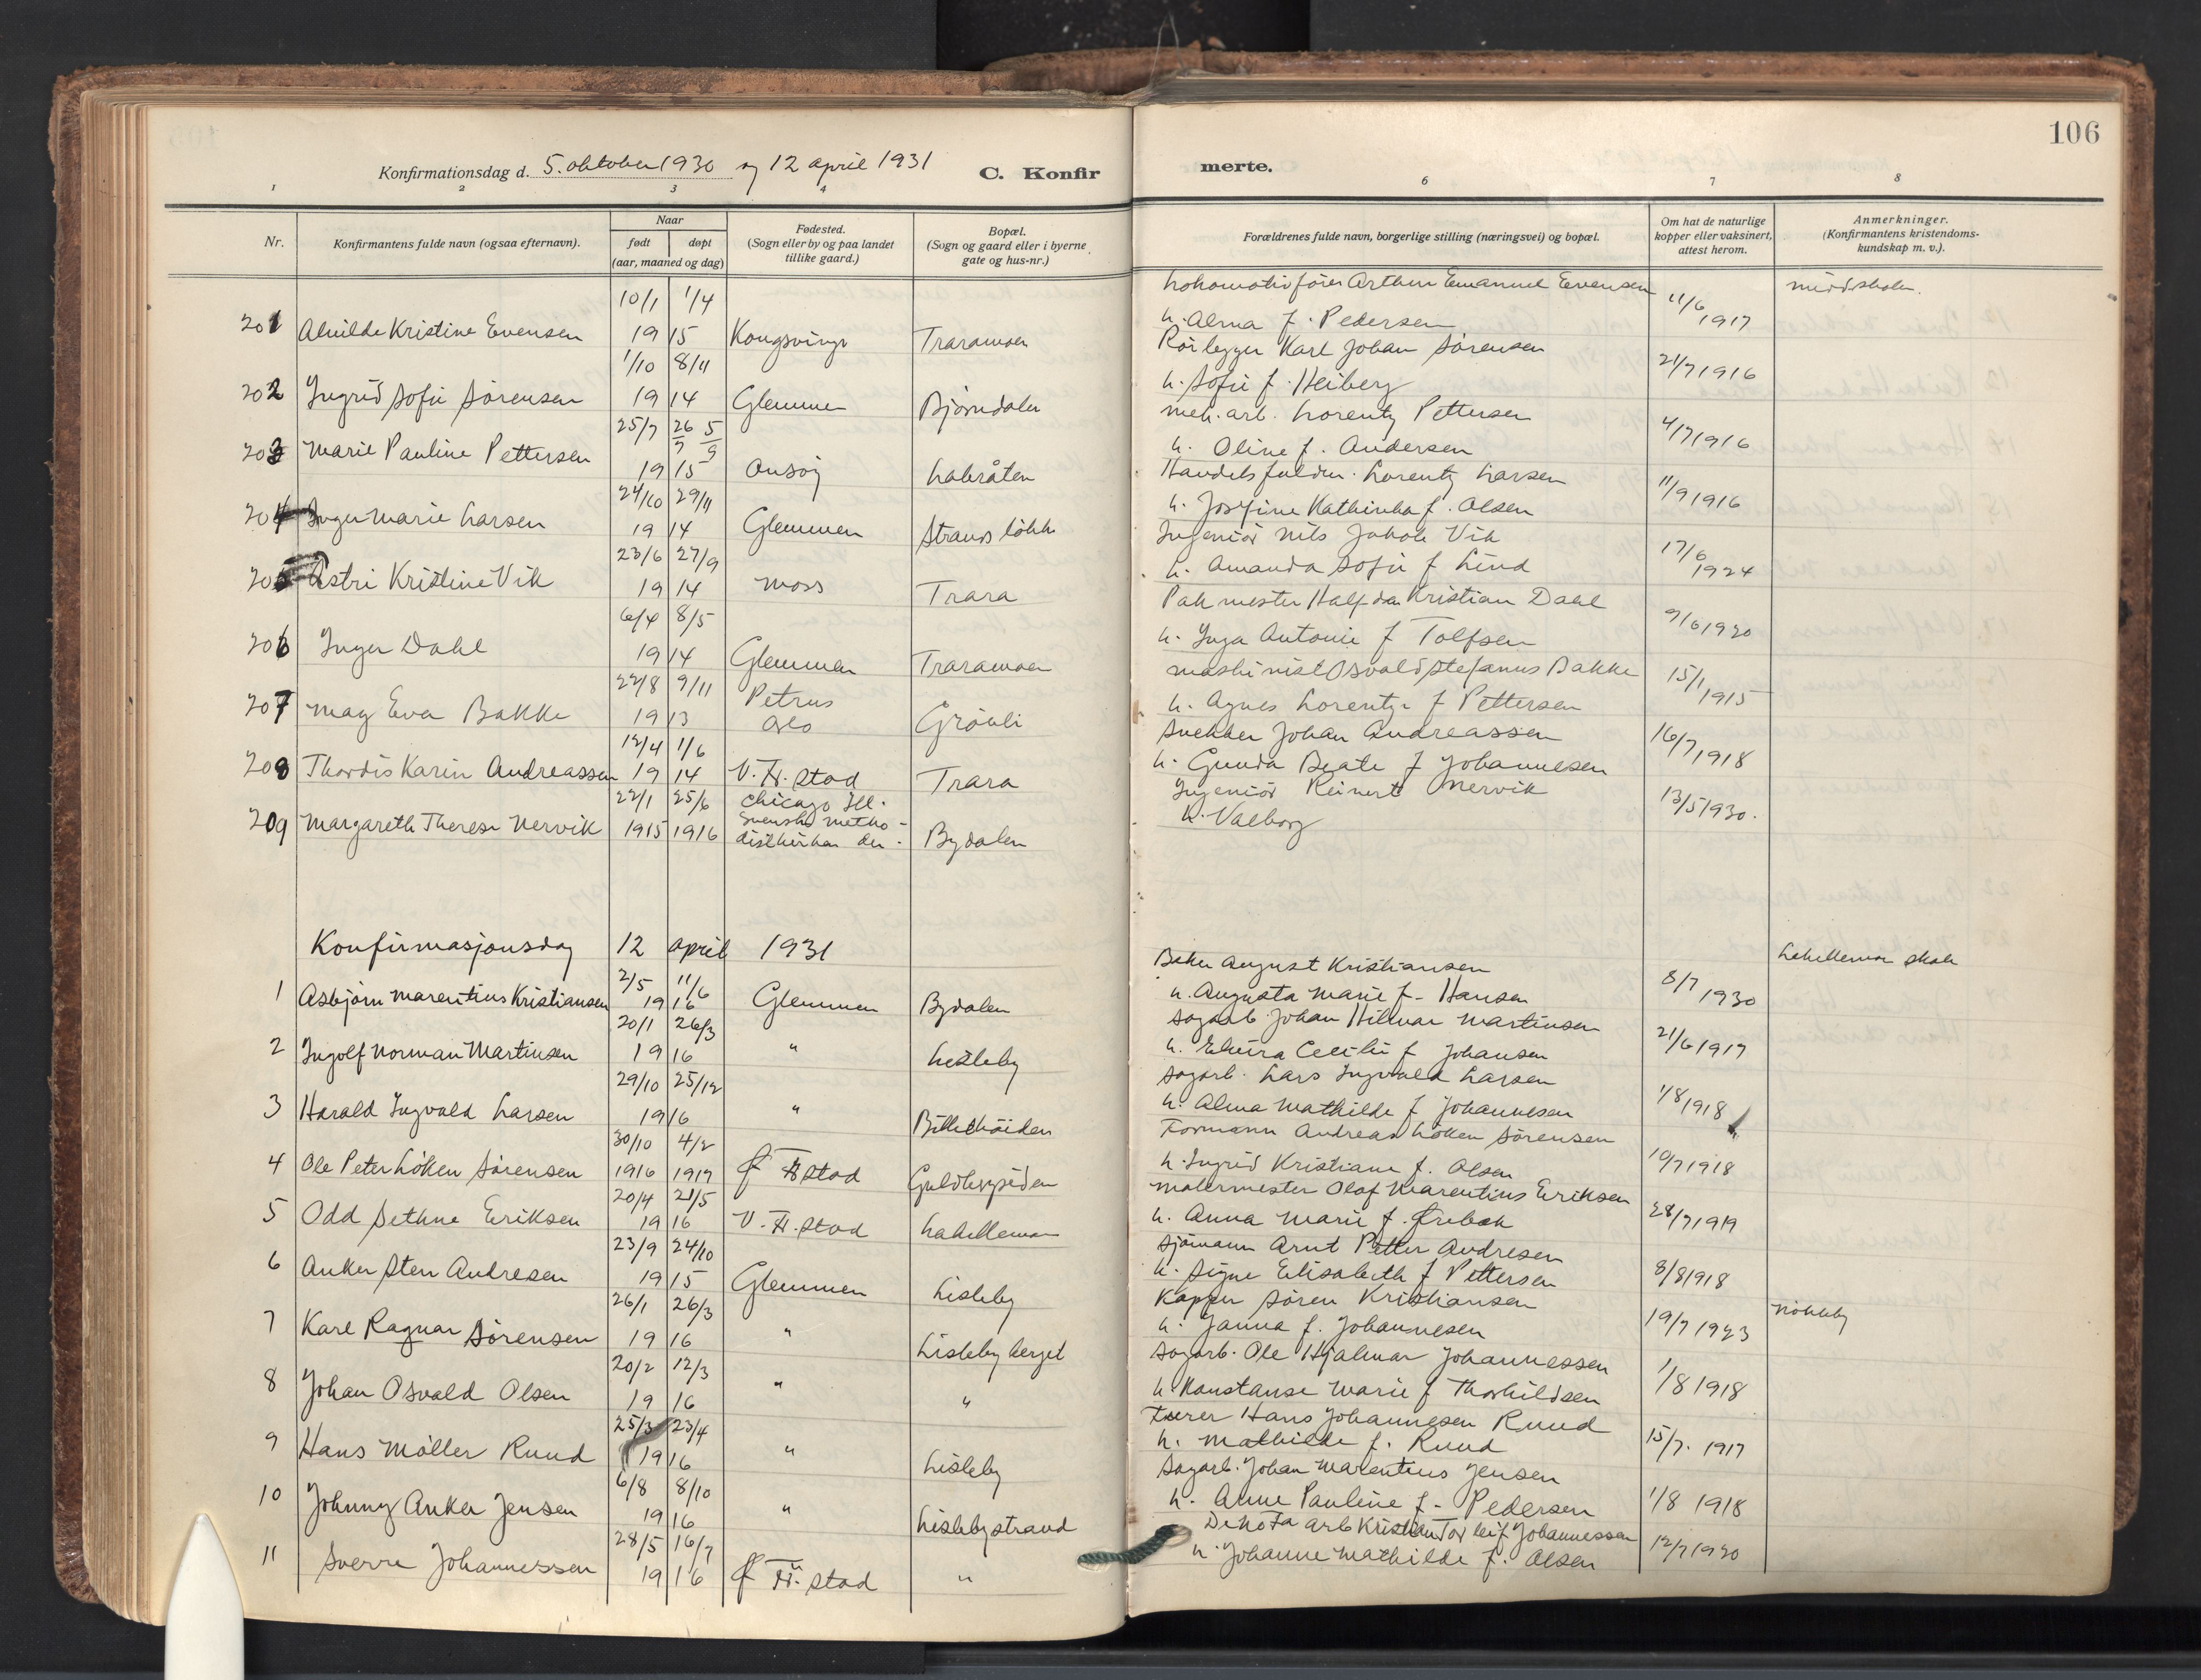 106
Konfirmationsdag d. 5. oktober 1930 og 12 april 1931 C. Konfirmerte.
1 2 3 4 6 7 8
Nr.
Konfirmantens fulde navn (ogsaa efternavn).
Naar
født døpt
(aar, maaned og dag)
Fødested.
(Sogn eller by og paa landet
tillike gaard.)
Bopæl.
(Sogn og gaard eller i byerne
gate og hus-nr.)
Forældrenes fulde navn, borgerlige stilling (næringsvei) og bopæl.
Om hat de naturlige
kopper eller vaksinert,
attest herom.
Anmerkninger.
(Konfirmantens kristendoms-
kundskap m. v.).
10/1 1/4 Lokomotivfører Arthur Emanuel Evensen 11/6 1917 middskolen.
201 Alvilde Kristine Evensen 19 15 Kongsvinger Traramoen h. Alma f. Pedersen
1/10 8/11 Rörlegger Karl Johan Sörensen 21/7 1916
202 Ingrid Sofie Sörensen 19 14 Glemmen Björndalen h. Sofie f. Heiberg
25/7 26/7 5/9 mek. arb. Lorentz Pettersen 4/7 1916
203 Marie Pauline Pettersen 19 15 Onsöy Labråten h. Oline f. Andersen
24/10 29/11 Handelsfuldm. Lorentz Larsen 11/9 1916
204 Inger Marie Larsen 19 14 Glemmen Strands lökk h. Josefine Kathinka f. Olsen
23/6 27/9 Ingeniör Nils Jakob Vik 17/6 1924
205 Astri Kristine Vik 19 14 Moss Trara h. Amanda Sofie f Lind
6/4 8/5 Pakmester Halfdan Kristian Dahl 9/6 1920
206 Inger Dahl 19 14 Glemmen Traramoen h. Inga Antonie f Tolfsen
22/8 9/11 Petrus maskinist Osvald Stefanus Bakke 15/1 1915
207 May Eva Bakke 19 13 Oslo Grönli h. Agnes Lorentze f Pettersen
12/4 1/6 Snekker Johan Andreassen 16/7 1918
208 Thordis Karin Andreassen 19 14 V. Fr. stad Trara h. Gunda Beate f Johannesen
22/1 25/6 Chicago Ill. Ingeniör Reinert Nervik 13/5 1930.
209 Margareth Therese Nervik 1915 1916 Svenske metho- Bydalen h. Valborg
distkirken der.
Konfirmasjonsdag 12 april 1931
2/5 11/6 Baker August Kristiansen 8/7 1930 Labellemoe skole
1 Asbjörn Marentius Kristiansen 19 16 Glemmen Bydalen h. Augusta Marie f. Hansen
20/1 26/3 Sagarb. Johan Hilmar Martinsen 21/6 1917
2 Ingolf Norman Martinsen 19 16 " Lisleby h. Elvira Cecilie f Johansen
29/10 25/12 Sagarb. Lars Ingvald Larsen 1/8 1918
3 Harald Ingvald Larsen 19 16 " h. Alma Mathilde f Johannesen
30/10 4/2 Formann Andreas Löken Sörensen 10/7 1918
4 Ole Peter Löken Sörensen 1916 1917 Fr. stad h. Ingrid Kristiane f. Olsen
20/4 21/5 Malermester Olaf Marentius Eriksen 28/7 1919
5 Odd Sethne Eriksen 19 16 V. Fr. stad Labellemoen h. Anna Marie f.
23/9 24/10 Sjömann Arnt Petter Andresen 8/8 1918
6 Anker Sten Andresen 19 15 Glemmen Lisleby h. Signe Elisabeth f Pettersen
26/1 26/3 Sören Kristiansen 19/7 1923 Nökkeby
7 Karl Ragnar Sörensen 19 16 " Lislebyberget h. Janna f. Johannesen
20/2 12/3 Sagarb. Ole Hjalmar Johannessen 1/8 1918
8 Johan Osvald Olsen 19 16 " " h. Konstanse Marie f Thorkildsen
25/3 23/4 Hans Johannesen Ruud 15/7. 1917
9 Hans Möller Ruud 19 16 " Lisleby h. Mathilde f. Ruud
6/8 8/10 Sagarb. Johan Marentius Jensen 1/8 1918
10 Johnny Anker Jensen 19 16 " Lislebystrand h. Anne Pauline f. Pedersen
28/5 16/7 DeNoFa arb Kristian Torleif Johannessen 12/7 1920
11 Sverre Johannessen 19 16 Fr. stad " h. Johanne Mathilde f. Olsen